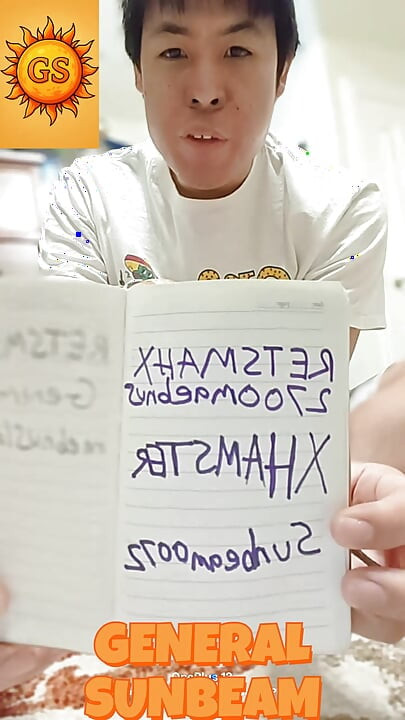 GS
RETSMAHX
2700maebnus
XHAMSTER
Sunbeam0072
GENERAL
SUNBEAM